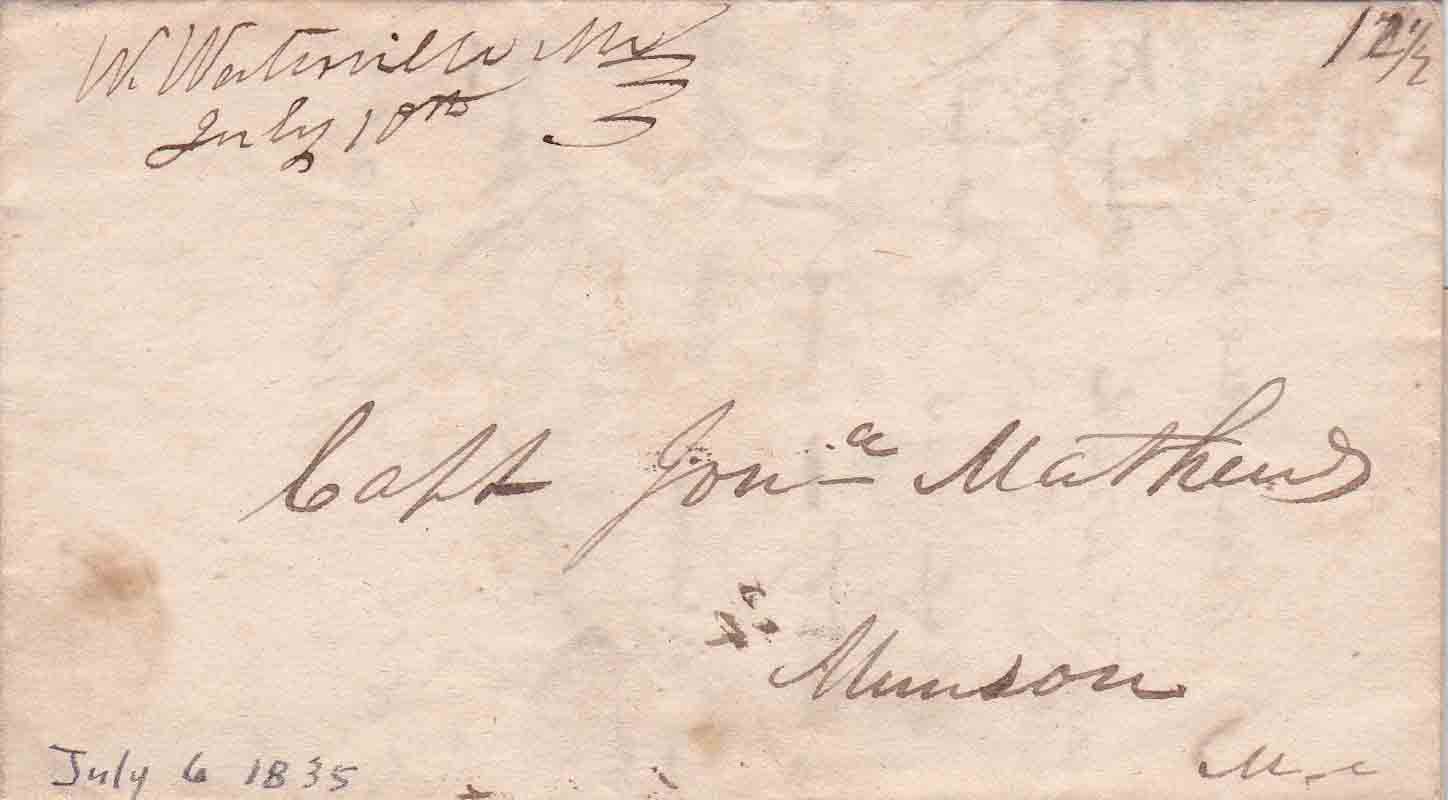 W. Waterville Me
July 10th
12 1/2
Capt Jona Mathews
Munson
Me
July 6 1835